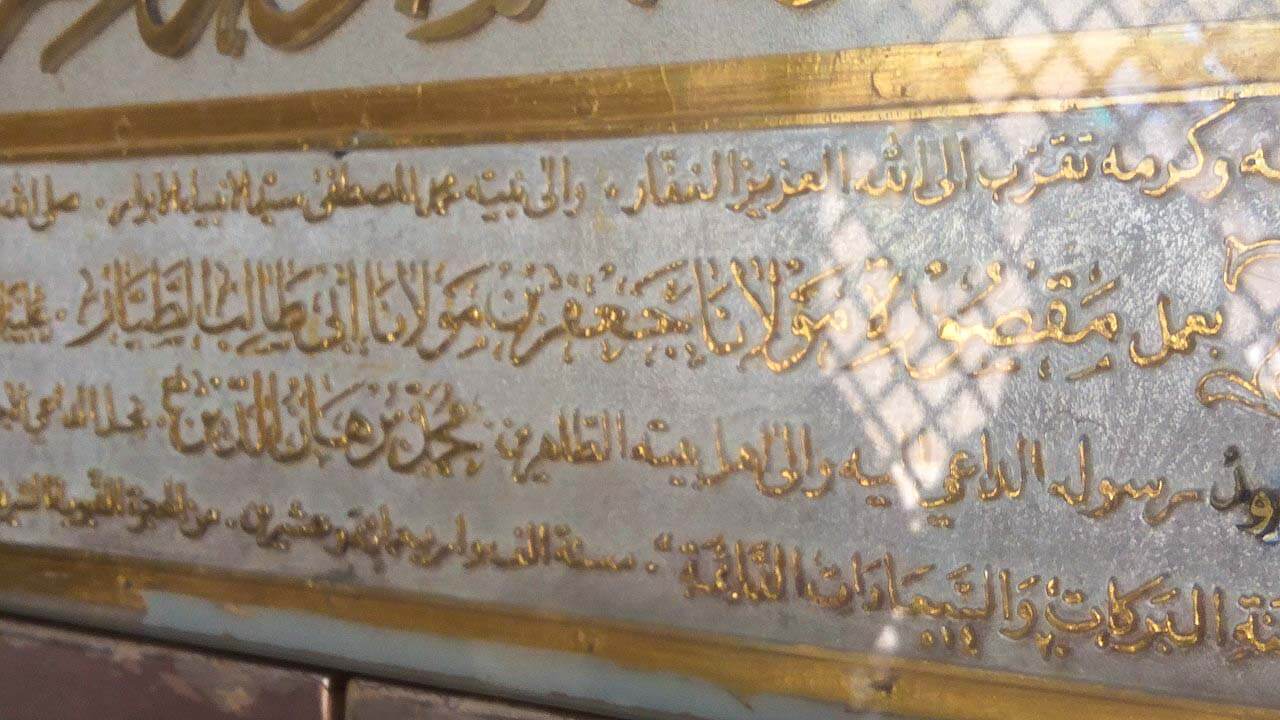 وكرمه تقرّب الى الله العزيز الغفّار. والى نبيّه محمد المصطفى سيد الانبياء الابرار. صلى الله
بعمل مَقصُورَة مَولانَا جَعفَر بن مَولانَا ابى طَالِب الطَّيَّار.
رسول الداعي اليه والى اهل بيته الطاهرين محمد برهان الدين نجل الداعي
البَركَات والسَّعَادَات سنة الف واربعمائة وعشرين. من الهجرة النبوية